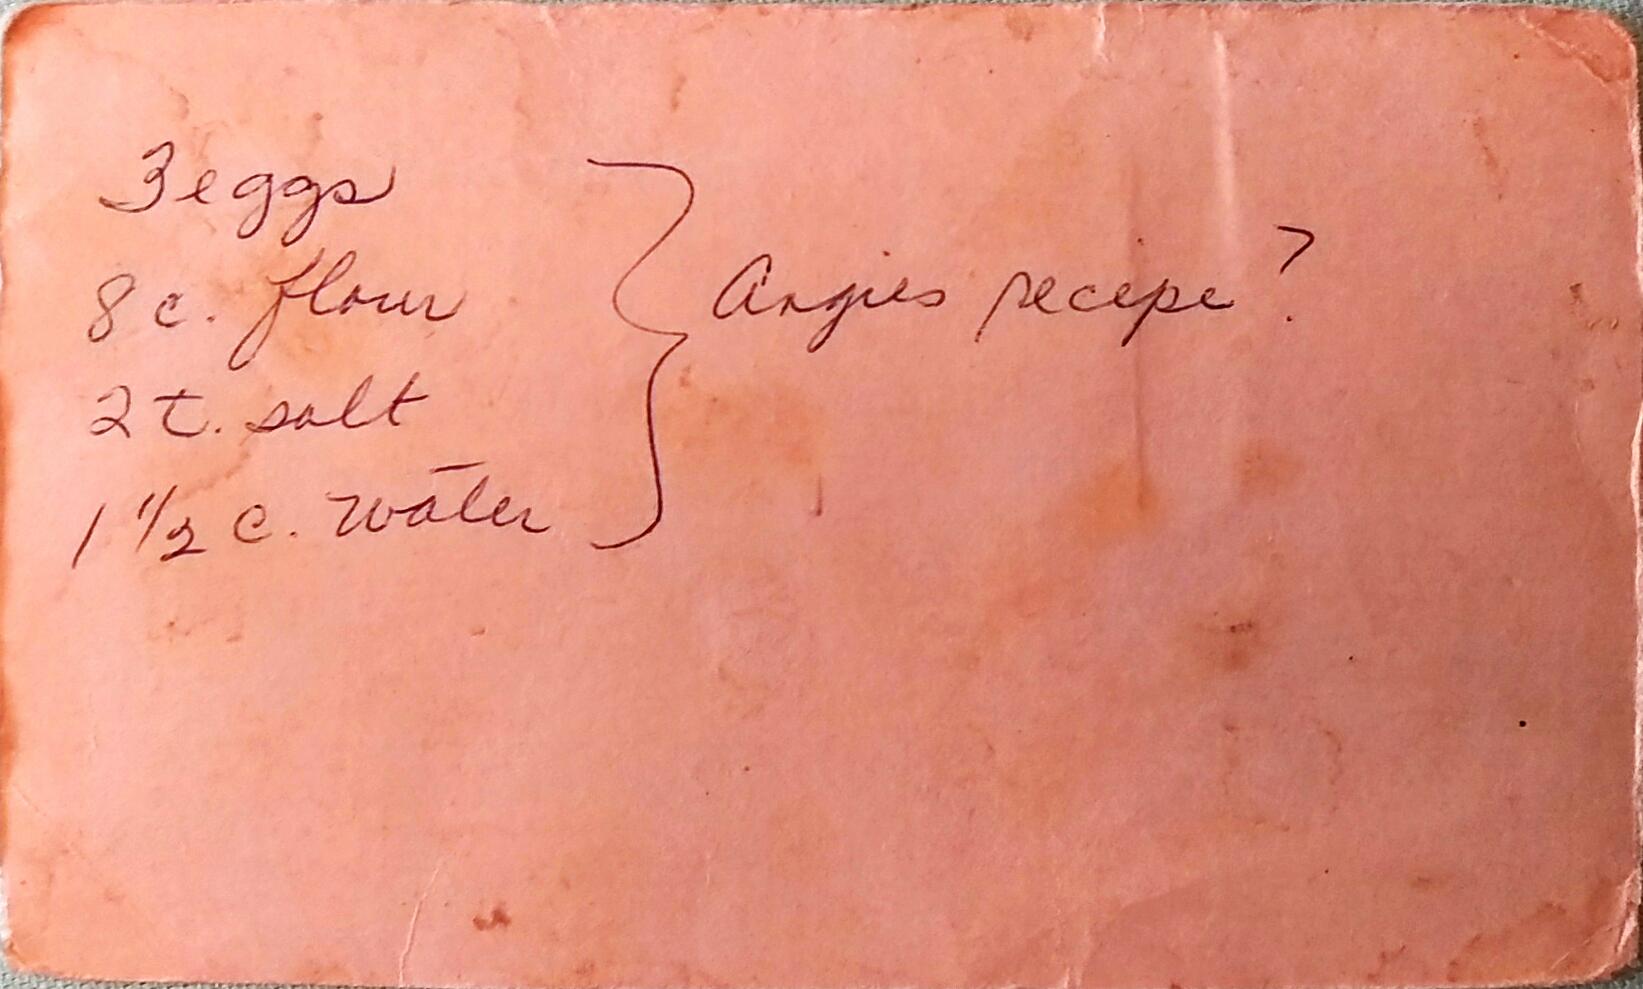 3 eggs
8 c. flour
2 t. salt
1 1/2 c. water
Angies recepe?